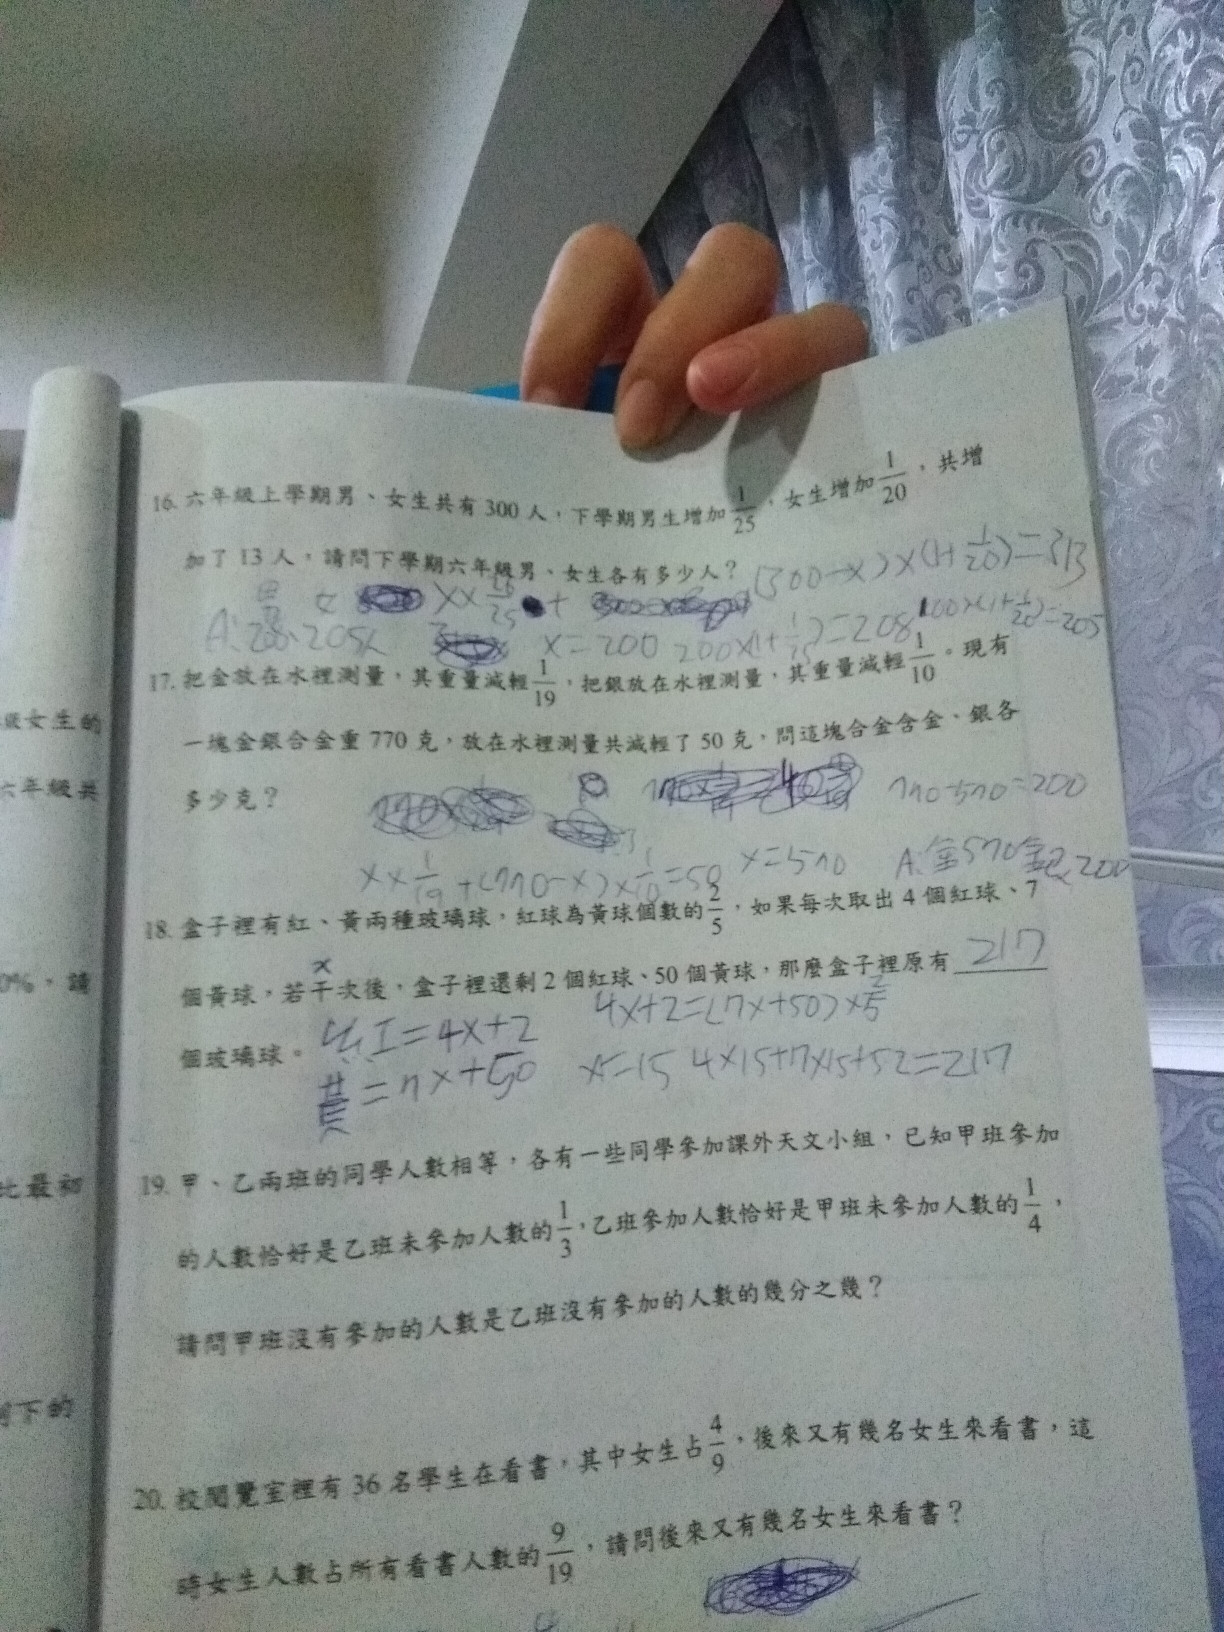 16. 六年級上學期男、女生共有 300 人，下學期男生增加 1/25，女生增加 1/20，共增
加了 13 人，請問下學期六年級男、女生各有多少人？
(300-x)×(1+1/20)=313
x× 26/25 +
100×(1+1/20)=205
A: 208、205人
x=200 200×(1+1/25)=208
17. 把金放在水裡測量，其重量減輕 1/19，把銀放在水裡測量，其重量減輕 1/10。現有
一塊金銀合金重 770 克，放在水裡測量共減輕了 50 克，問這塊合金含金、銀各
多少克？
770-570=200
x× 1/19 +(770-x)× 1/10 =50 x=570 A:金570銀200
18. 盒子裡有紅、黃兩種玻璃球，紅球為黃球個數的 2/5，如果每次取出 4 個紅球、7
x
個黃球，若干次後，盒子裡還剩 2 個紅球、50 個黃球，那麼盒子裡原有 217
個玻璃球。
紅=4x+2 4x+2=(7x+50)× 2/5
黃=7x+50 x=15 4×15+7×15+52=217
19. 甲、乙兩班的同學人數相等，各有一些同學參加課外天文小組，已知甲班參加
的人數恰好是乙班未參加人數的 1/3，乙班參加人數恰好是甲班未參加人數的 1/4，
請問甲班沒有參加的人數是乙班沒有參加的人數的幾分之幾？
20. 校閱覽室裡有 36 名學生在看書，其中女生占 4/9，後來又有幾名女生來看書，這
時女生人數占所有看書人數的 9/19，請問後來又有幾名女生來看書？
級女生的
六年級共
0%，請
比最初
剩下的